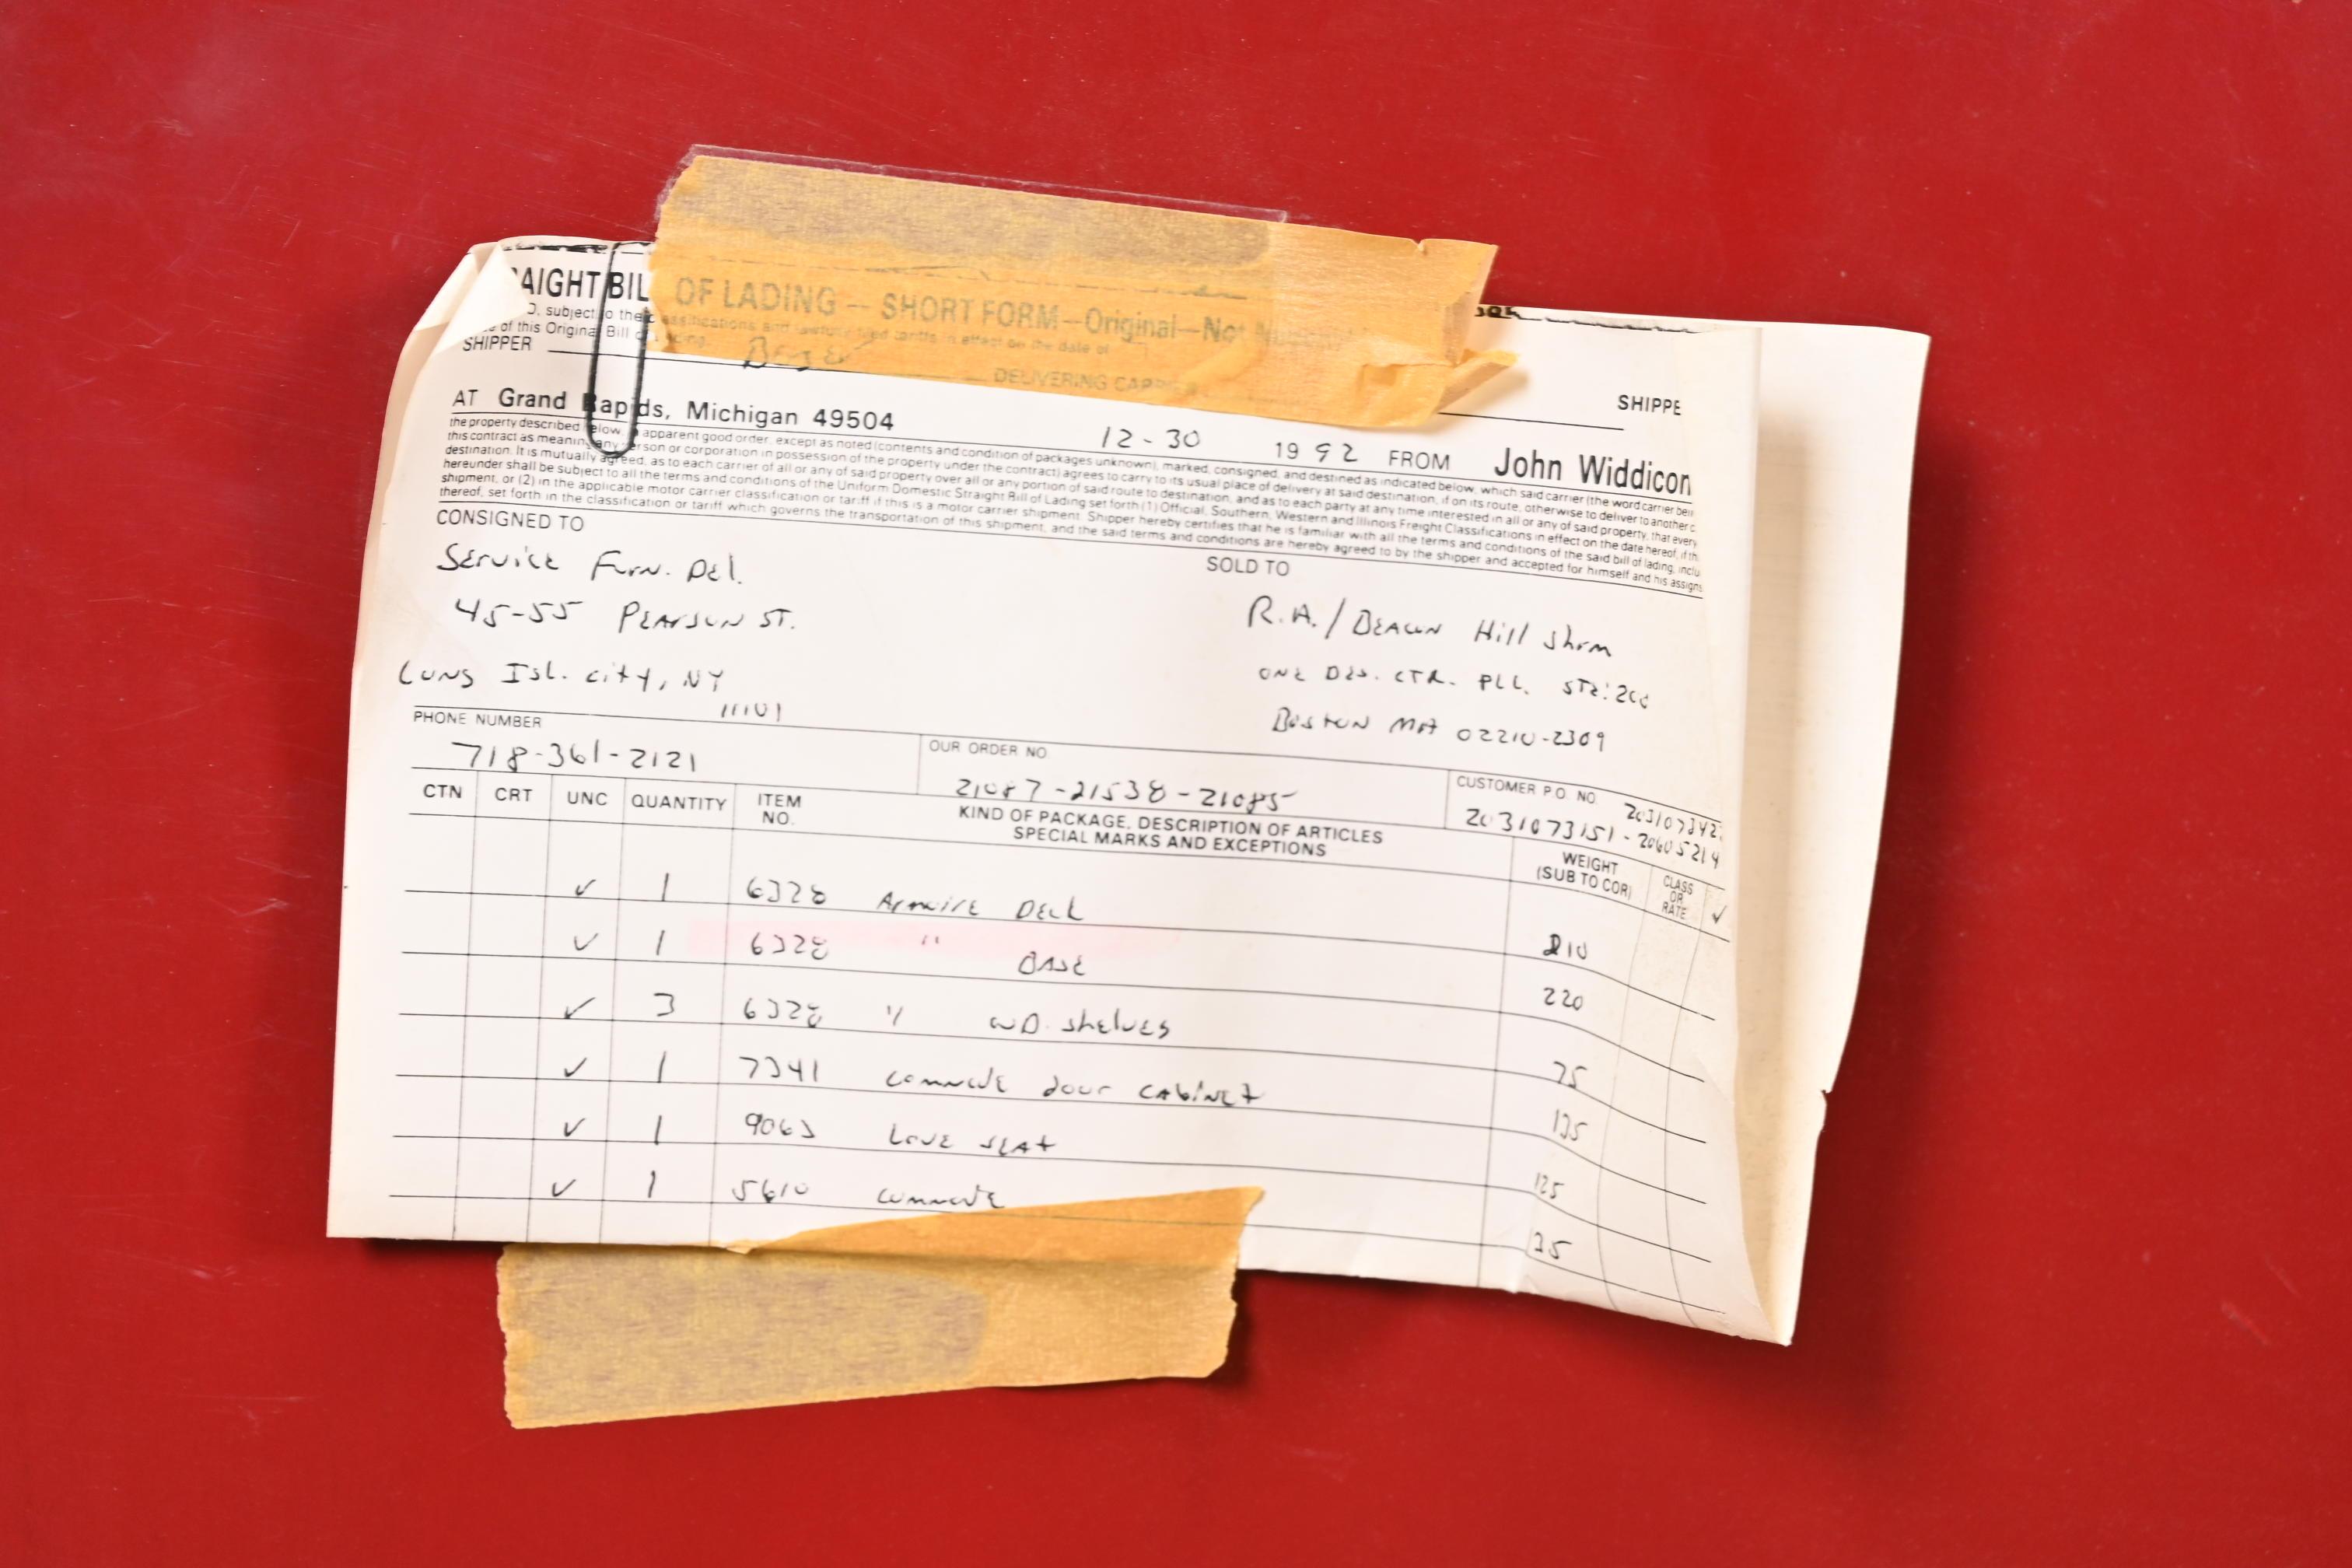 AIGHT BILL OF LADING — SHORT FORM — Original — Not
O, subject to the classifications and lawfully filed tariffs in effect on the date of
of this Original Bill of Lading.
SHIPPER
DELIVERING CARRIER
SHIPPE
AT Grand Rapids, Michigan 49504
12-30 1992 FROM John Widdicom
the property described below, in apparent good order, except as noted (contents and condition of packages unknown), marked, consigned, and destined as indicated below, which said carrier (the word carrier bein
this contract as meaning any person or corporation in possession of the property under the contract) agrees to carry to its usual place of delivery at said destination, if on its route, otherwise to deliver to another c
destination. It is mutually agreed, as to each carrier of all or any of said property over all or any portion of said route to destination, and as to each party at any time interested in all or any of said property, that every
hereunder shall be subject to all the terms and conditions of the Uniform Domestic Straight Bill of Lading set forth (1) Official, Southern, Western and Illinois Freight Classifications in effect on the date hereof, if th
shipment, or (2) in the applicable motor carrier classification or tariff if this is a motor carrier shipment. Shipper hereby certifies that he is familiar with all the terms and conditions of the said bill of lading, inclu
thereof, set forth in the classification or tariff which governs the transportation of this shipment, and the said terms and conditions are hereby agreed to by the shipper and accepted for himself and his assigns
CONSIGNED TO
Service Furn. Del.
45-55 Pearson St.
Long Isl. City, NY
11101
SOLD TO
R.A./Beacon Hill Shrm
One Des. Ctr. Pll. Ste:200
Boston MA 02210-2309
PHONE NUMBER
718-361-2121
OUR ORDER NO.
21087-21538-21085
CUSTOMER P.O. NO.
2031073151-20605214
CTN CRT UNC QUANTITY ITEM NO. KIND OF PACKAGE, DESCRIPTION OF ARTICLES SPECIAL MARKS AND EXCEPTIONS WEIGHT (SUB TO COR) CLASS OR RATE ✓
✓ 1 6328 Armoire Deck 210
✓ 1 6328 " Base 220
✓ 3 6328 " WD. Shelves 75
✓ 1 7341 Commode door cabinet 135
✓ 1 9063 Love Seat 125
✓ 1 5610 Commode